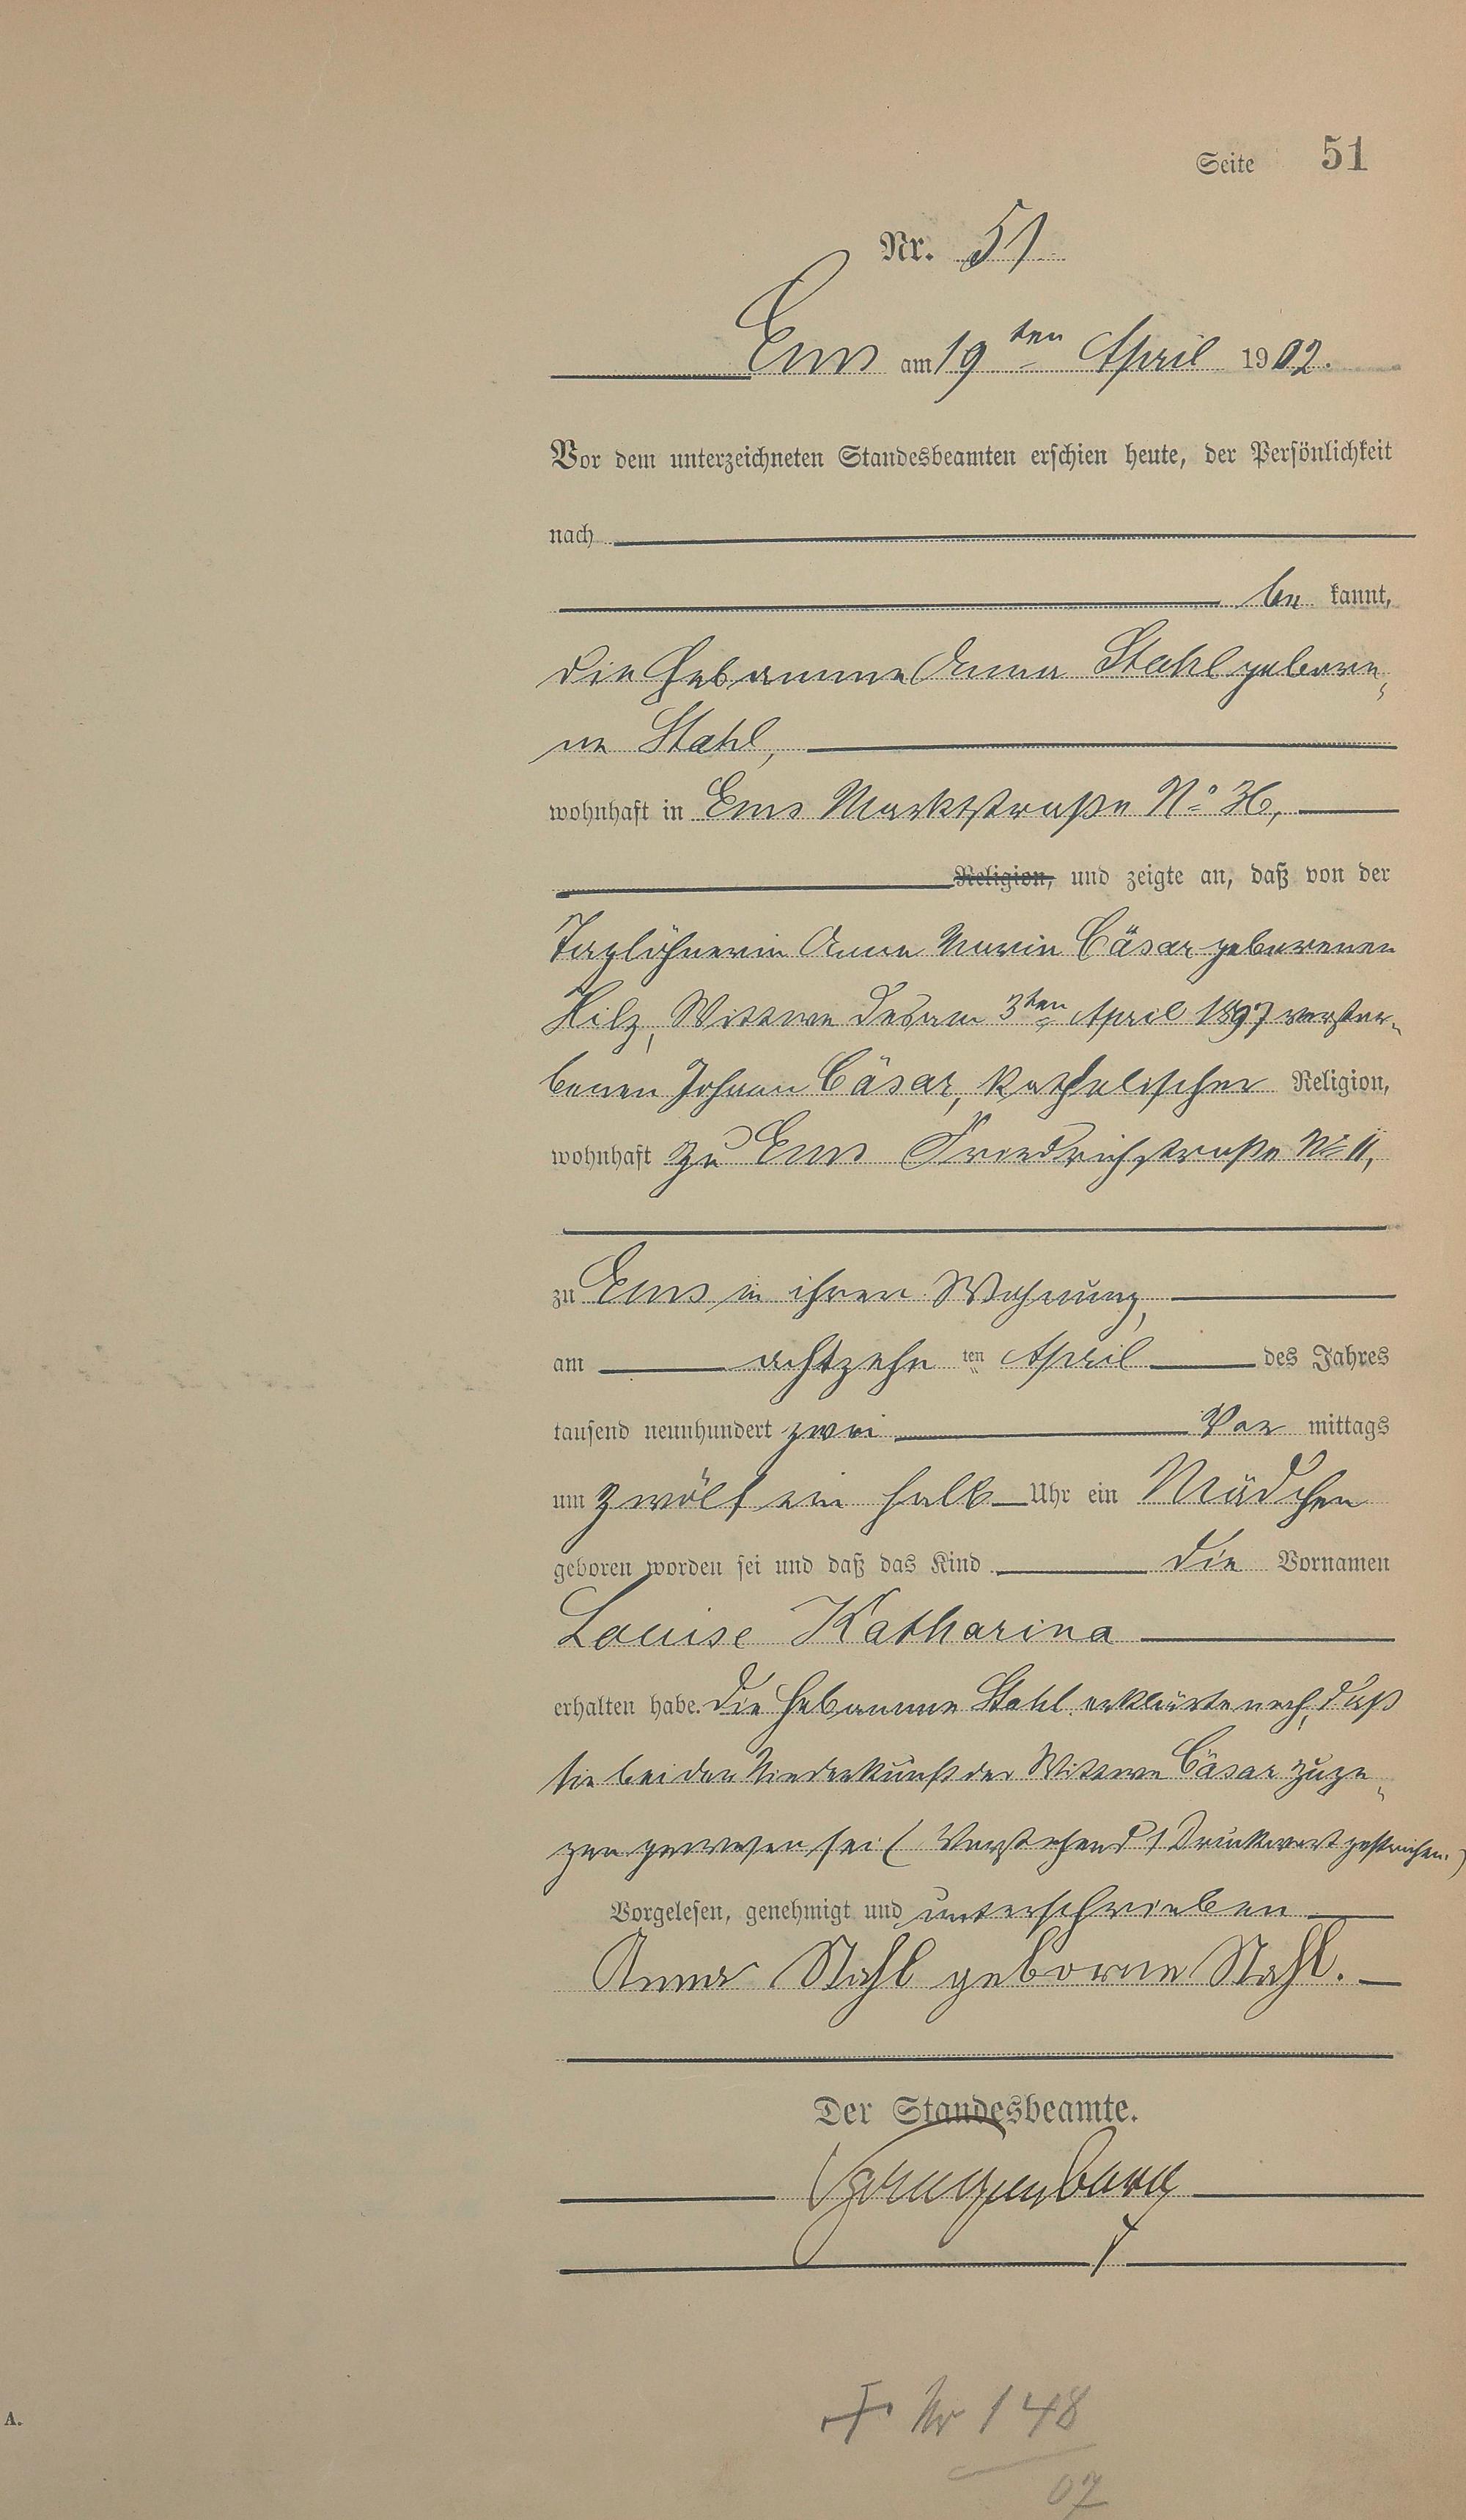 Seite 51
Nr. 51
Ems am 19ten April 1902.
Vor dem unterzeichneten Standesbeamten erschien heute, der Persönlichkeit
nach
be kannt,
die Hebamme Anna Stahl gebore-
ne Stahl,
wohnhaft in Ems Marktstraße No 36,
Religion, und zeigte an, daß von der
Taglöhnerin Anna Maria Cäsar geborenen
Hilz, Wittwe des am 3ten April 1897 verstor-
benen Johann Cäsar, katholischer Religion,
wohnhaft zu Ems Friedrichstraße No 11,
zu Ems in ihrer Wohnung,
am achtzehn ten April des Jahres
tausend neunhundert zwei Vor mittags
um zwölf ein halb Uhr ein Mädchen
geboren worden sei und daß das Kind die Vornamen
Louise Katharina
erhalten habe. Die Hebamme Stahl erklärte noch, daß
sie bei der Niederkunft der Wittwe Cäsar zuge-
gen gewesen sei (Vorstehend 1 Druckwort gestrichen.)
Vorgelesen, genehmigt und unterschrieben
Anna Stahl geborne Stahl.
Der Standesbeamte.
† Nr 148
07
A.